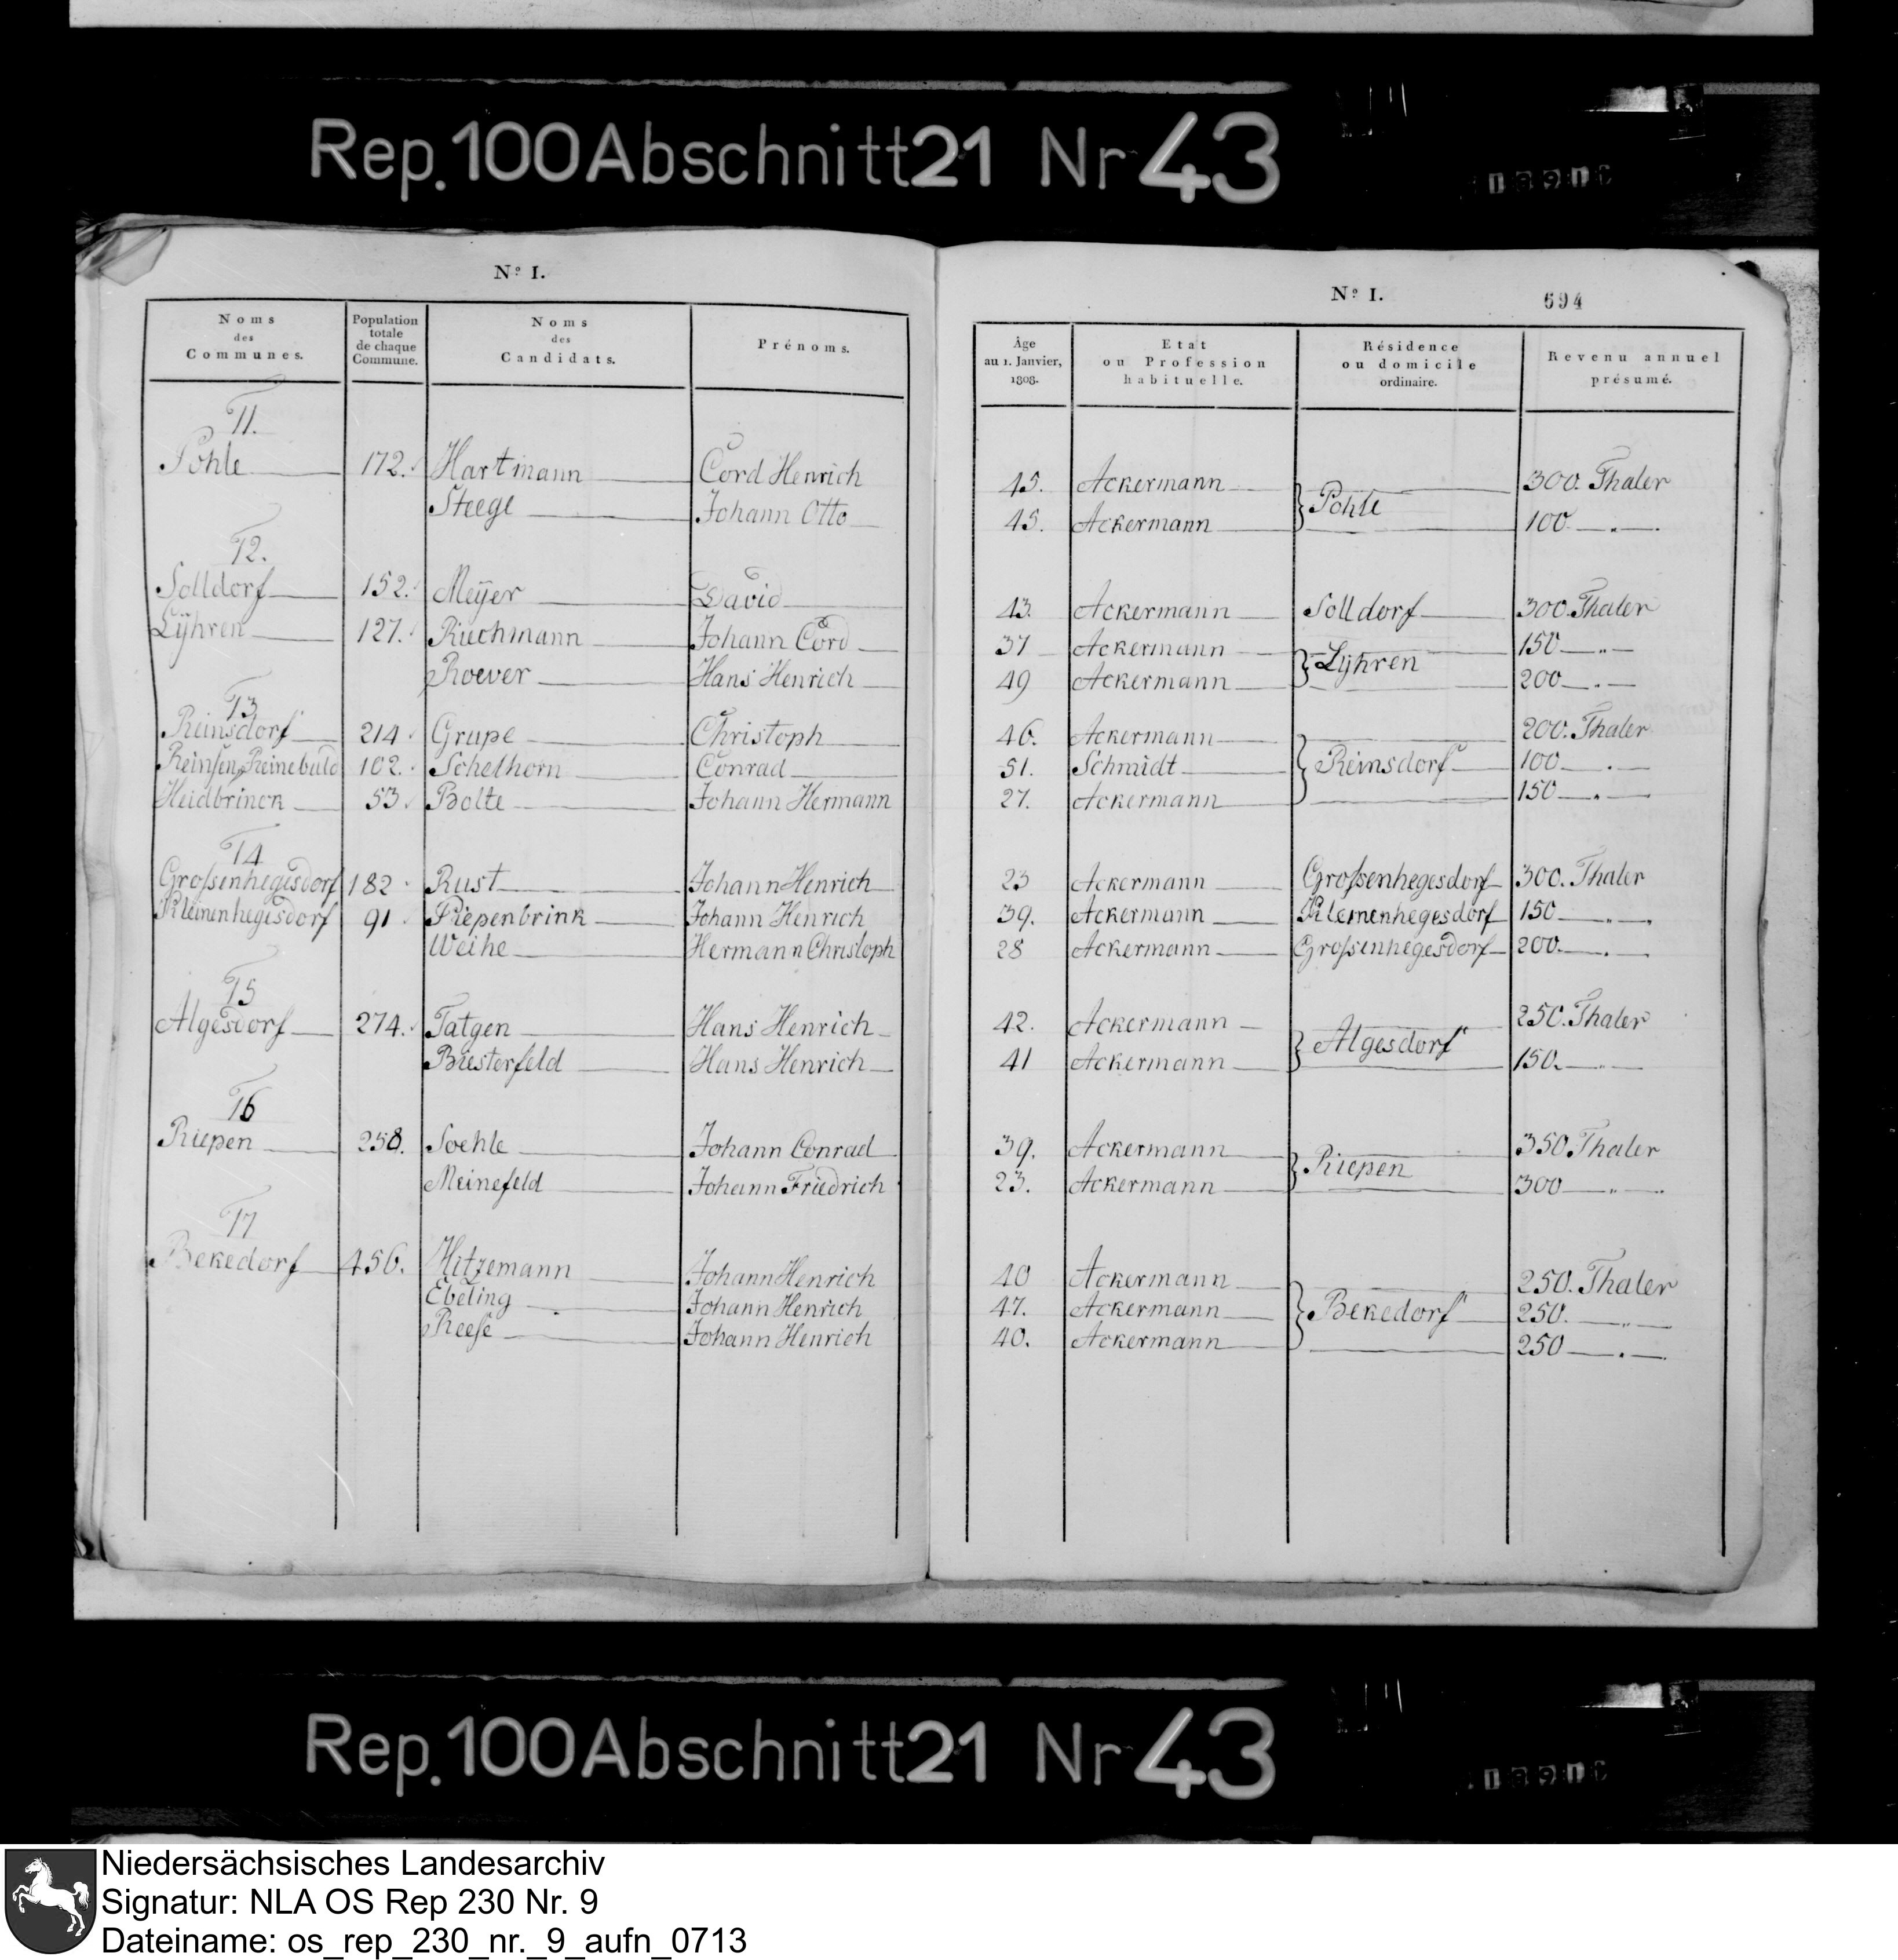 Rep. 100 Abschnitt 21 Nr 43
Nº I.
Noms des Communes. Population totale de chaque Commune. Noms des Candidats. Prénoms.
11.
Pohle 172. Hartmann Cord Henrich
Steege Johann Otto
12.
Solldorf 152. Meÿer David
Lÿhren 127. Riechmann Johann Cord
Roever Hans Henrich
13
Reinsdorf 214 Grupe Christoph
Reinsen, Reinebuld 102. Schelhorn Conrad
Heidbrinck 53. Bolte Johann Hermann
14
Grossenhegesdorf 182 Rust Johann Henrich
Kleinenhegesdorf 91 Piepenbrink Johann Henrich
Weihe Hermann Christoph
15
Algesdorf 274. Tatgen Hans Henrich
Biesterfeld Hans Henrich
16
Riepen 258. Soehle Johann Conrad
Meinefeld Johann Friedrich
17
Bekedorf 456. Hitzemann Johann Henrich
Ebeling Johann Henrich
Reese Johann Henrich
Nº I. 694
Âge au 1. Janvier, 1808. Etat ou Profession habituelle. Résidence ou domicile ordinaire. Revenu annuel présumé.
45. Ackermann 300. Thaler
Pohle
45. Ackermann 100 — " —
43. Ackermann Solldorf 300. Thaler
37 Ackermann 150 — " —
Lÿhren
49 Ackermann 200 — " —
46. Ackermann 200. Thaler
51. Schmidt Reinsdorf 100 — " —
27. Ackermann 150 — " —
23 Ackermann Grossenhegesdorf 300. Thaler
39. Ackermann Kleinenhegesdorf 150 — " —
28 Ackermann Grossenhegesdorf 200. — " —
42. Ackermann 250. Thaler
Algesdorf
41 Ackermann 150. — " —
39. Ackermann 350. Thaler
Riepen
23. Ackermann 300 — " —
40 Ackermann 250. Thaler
47. Ackermann Bekedorf 250. — " —
40. Ackermann 250 — " —
Rep. 100 Abschnitt 21 Nr 43
Niedersächsisches Landesarchiv
Signatur: NLA OS Rep 230 Nr. 9
Dateiname: os_rep_230_nr._9_aufn_0713